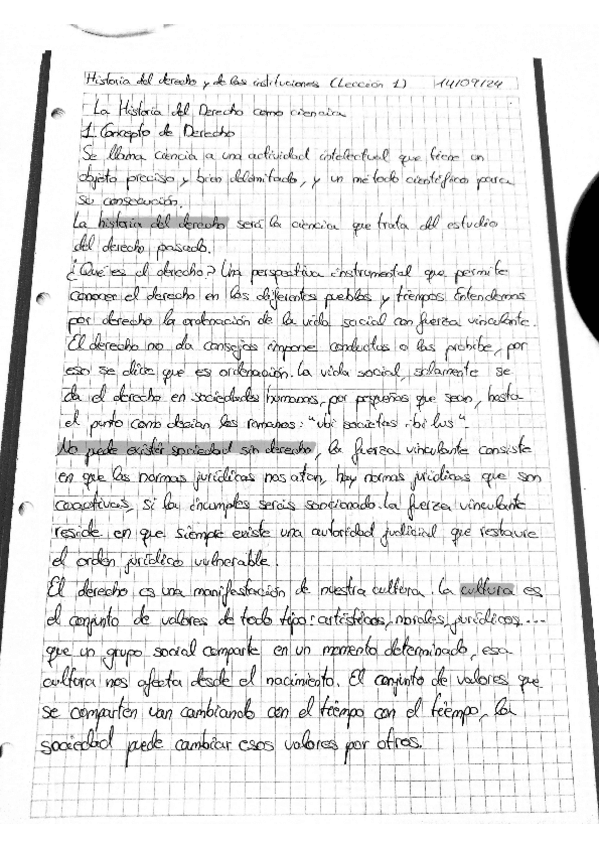 Historia del derecho y de las instituciones (Lección 1) 14/09/24
La Historia del Derecho como ciencia
1. Concepto de Derecho
Se llama ciencia a una actividad intelectual que tiene un
objeto preciso y bien delimitado, y un método científico para
su consecución.
La historia del derecho será la ciencia que trata del estudio
del derecho pasado.
¿Qué es el derecho? Una perspectiva instrumental que permite
conocer el derecho en los diferentes pueblos y tiempos. Entendemos
por derecho la ordenación de la vida social con fuerza vinculante.
El derecho no da consejos impone conductas o las prohibe, por
eso se dice que es ordenación. La vida social, solamente se
da el derecho en sociedades humanas, por pequeñas que sean, hasta
el punto como decían los romanos: "ubi societas ibi ius".
No puede existir sociedad sin derecho, la fuerza vinculante consiste
en que las normas jurídicas nos atan, hay normas jurídicas que son
coactivas, si las incumples serás sancionado. La fuerza vinculante
reside en que siempre existe una autoridad judicial que restaure
el orden jurídico vulnerable.
El derecho es una manifestación de nuestra cultura. La cultura es
el conjunto de valores de todo tipo: artísticos, morales, jurídicos...
que un grupo social comparte en un momento determinado, esa
cultura nos afecta desde el nacimiento. El conjunto de valores que
se comparten van cambiando con el tiempo con el tiempo, la
sociedad puede cambiar esos valores por otros.